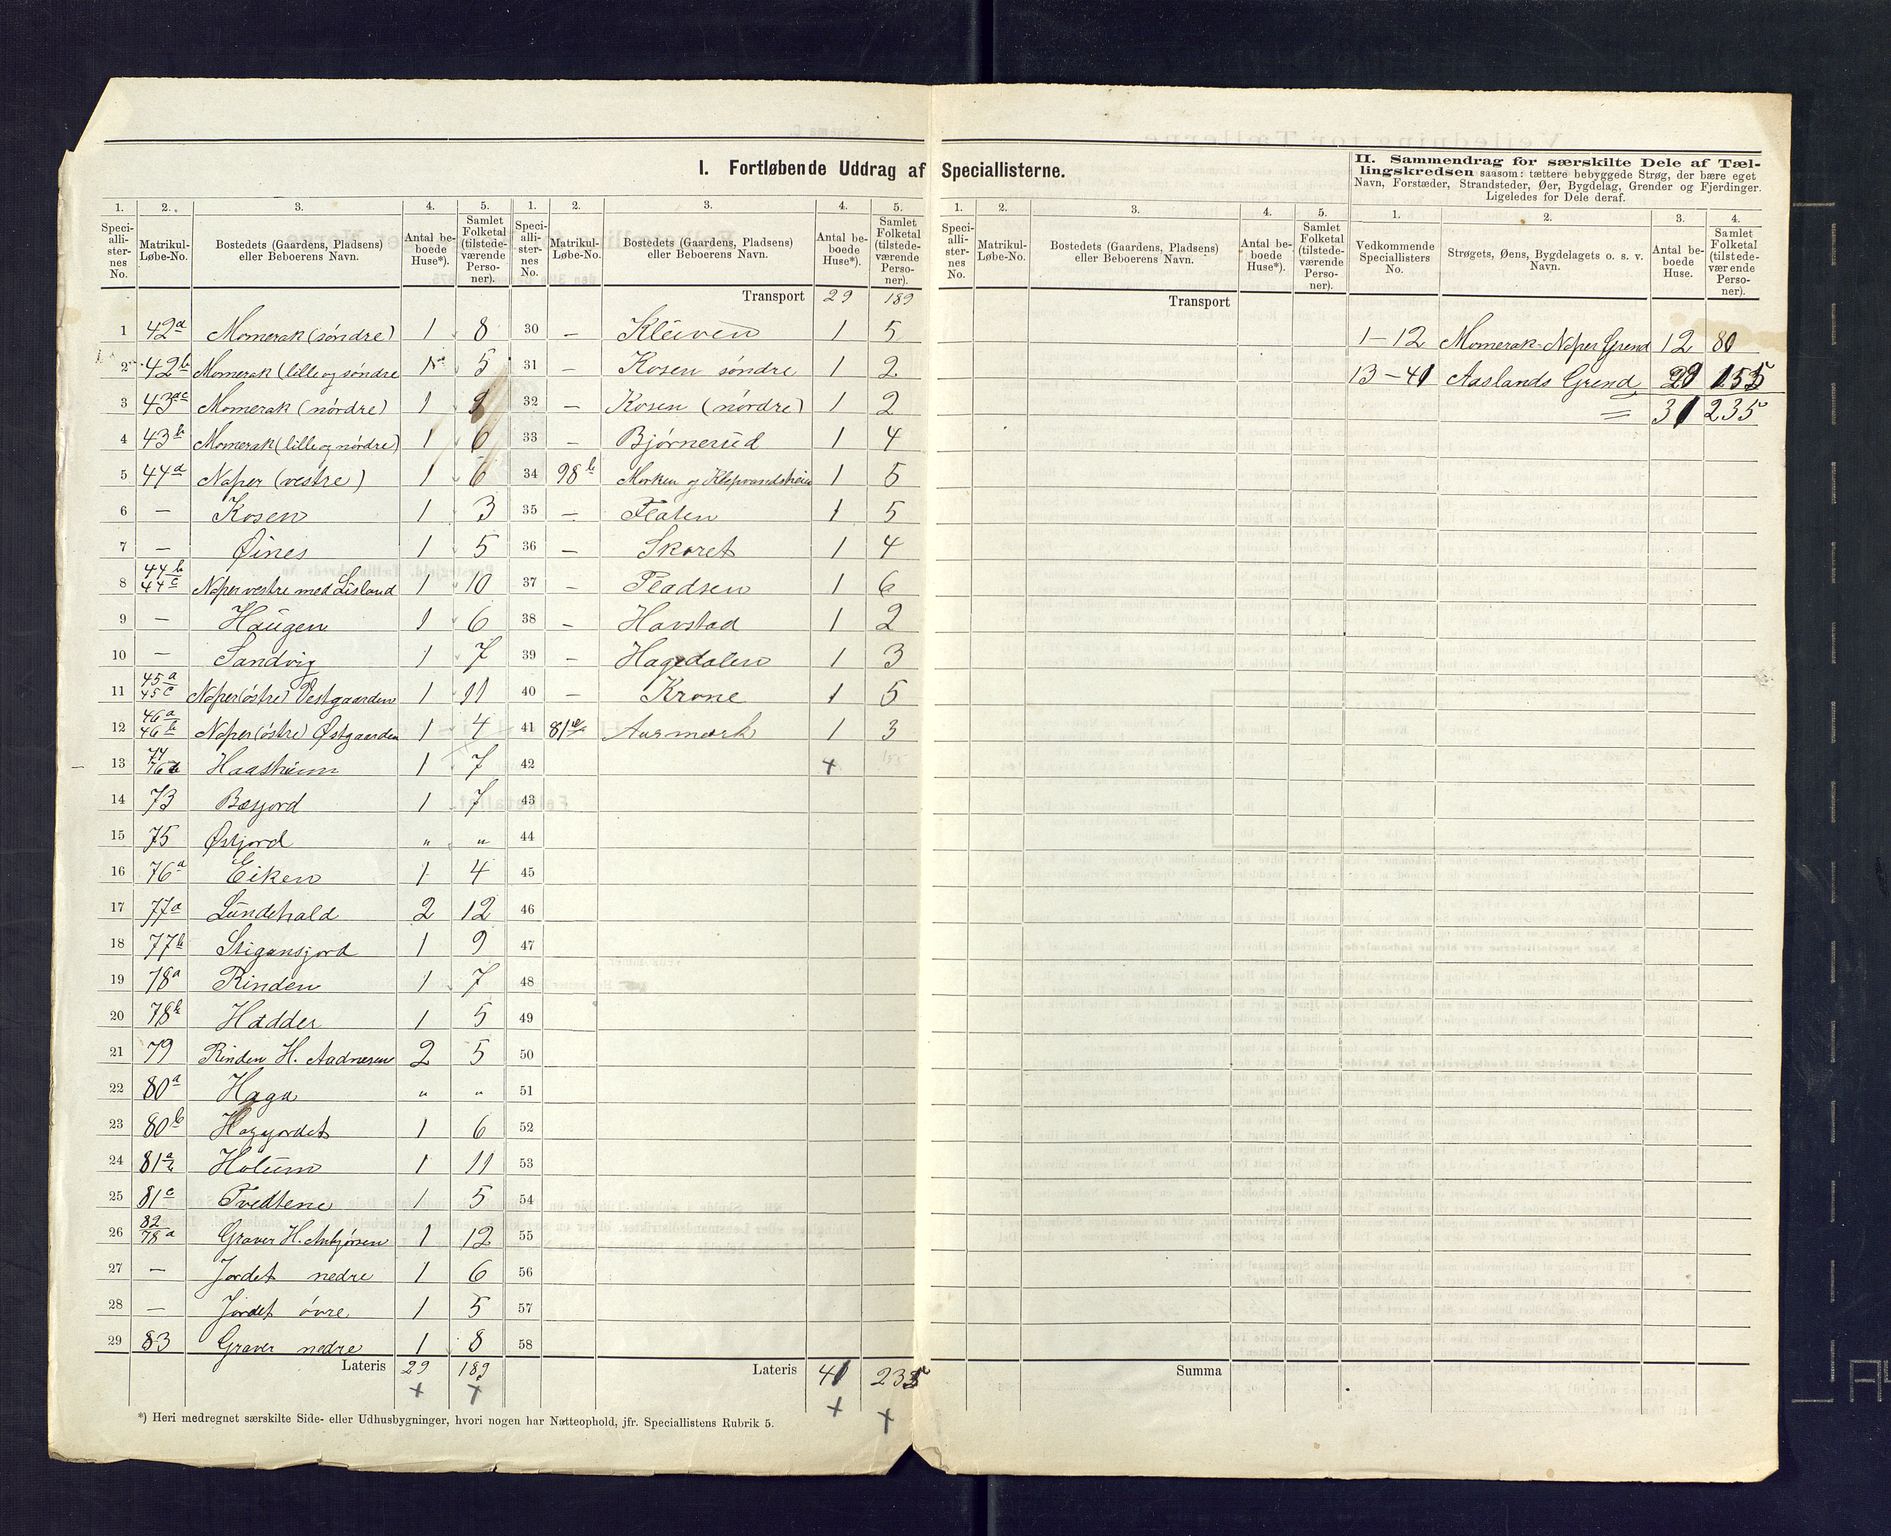 I. Fortløbende Uddrag af Speciallisterne.
II. Sammendrag for særskilte Dele af Tæl-
lingskredsen saasom: tættere bebyggede Strøg, der bære eget
Navn, Forstæder, Strandsteder, Øer, Bygdelag, Grender og Fjerdinger.
Ligeledes for Dele deraf.
1. 2. 3. 4. 5. 1. 2. 3. 4. 5. 1. 2. 3. 4. 5. 1. 2. 3. 4.
Speci-alli-ster-nes No. Matrikul-Løbe-No. Bostedets (Gaardens, Pladsens) eller Beboerens Navn. Antal be-boede Huse*). Samlet Folketal (tilstede-værende Perso-ner).
Speci-alli-ster-nes No. Matrikul-Løbe-No. Bostedets (Gaardens, Pladsens) eller Beboerens Navn. Antal be-boede Huse*). Samlet Folketal (tilstede-værende Perso-ner).
Speci-alli-ster-nes No. Matrikul-Løbe-No. Bostedets (Gaardens, Pladsens) eller Beboerens Navn. Antal be-boede Huse*). Samlet Folketal (tilstede-værende Perso-ner).
Vedkommende Speciallisters No. Strøgets, Øens, Bygdelagets o. s. v. Navn. Antal be-boede Huse. Samlet Folketal (tilstede-værende Perso-ner).
1 42a Momerak (søndre) 1 8
2 42b Momerak (lille og søndre 5
3 43ac Momerak (nørdre) 1
4 43b Momerak (lille og nørdre) 1 6
5 44a Naper (vestre) 1 6
6 — Kosen 1 3
7 — Øines 1 5
8 44b 44c Naper vestre med Lisland 1 10
9 — Haugen 1 6
10 — Sandvig 1 7
11 45a 45c Naper (østre) Vestgaarden 1 11
12 46a 46b Naper (østre) Østgaarden 1 4
13 Haasheim 1 7
14 73 Bæsjord 1 7
15 75 Østjord " "
16 76a Eiken 1 4
17 77a Lundehald 2 12
18 77b Stigansjord 1 9
19 78a Rinden 1 7
20 78b Hædder 1 5
21 79 Rinden H. Aadnesen 2 5
22 80a Haga " "
23 80b Hagejordet 1 6
24 81a Holum 1 11
25 81c Tvedtene 1 5
26 82 78a Graver H. Anbjørsen 1 12
27 — Jordet nedre 1 6
28 — Jordet øvre 1 5
29 83 Graver nedre 1 8
Lateris 29 189
Transport 29 189
30 — Kleiven 1 5
31 — Kosen søndre 1 2
32 — Kosen (nørdre) 1 2
33 — Bjørnerud 1 4
34 98b Morken og Klepvandsheien 1 5
35 — Flaten 1 5
36 — Skaret 1 4
37 — Pladsen 1 6
38 — Havstad 1 2
39 — Hagedalen 1 3
40 — Krone 1 5
41 Aasmork 1 3
42
43
44
45
46
47
48
49
50
51
52
53
54
55
56
57
58
Lateris 41 235
Transport
Summa
1–12 Momerak-Naper Grend 12 80
13–41 Aaslands Grend 29 155
= 31 235
*) Heri medregnet særskilte Side- eller Udhusbygninger, hvori nogen har Natteophold, jfr. Speciallistens Rubrik 5.